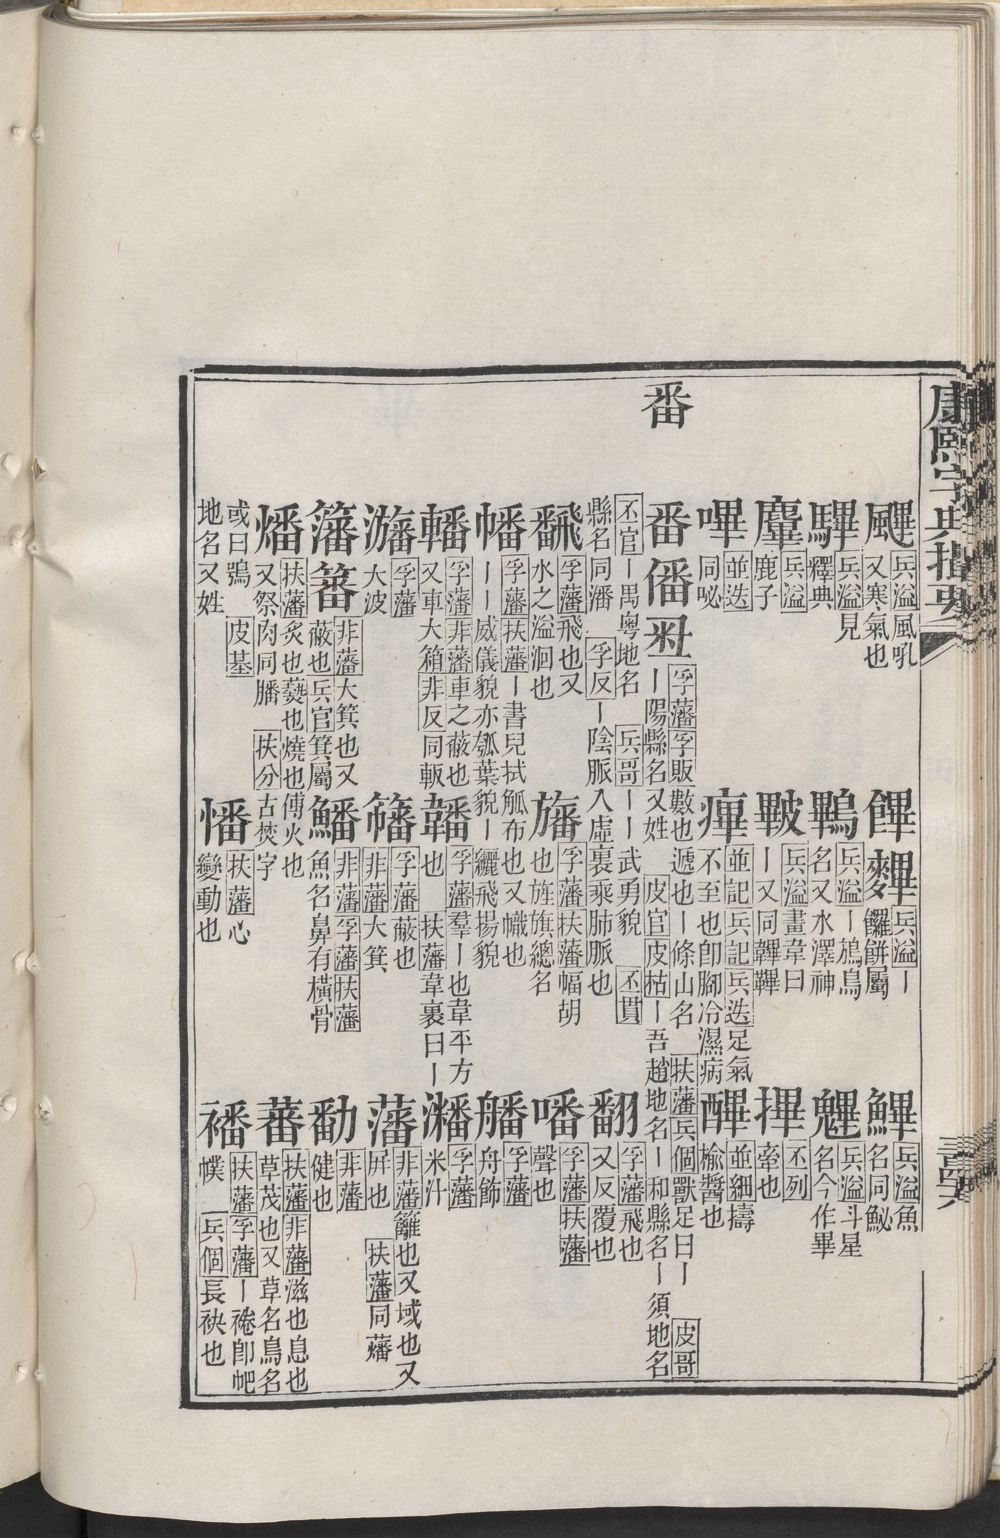 康熙字典撮要
䬛 兵溢風吼又寒氣也
饆𪍪 兵溢丨饠餅屬
鷝 兵溢魚名同鮅
驆 兵溢見釋典
鷝 兵溢丨鴋鳥名又水澤神
魓 兵溢斗星名今作畢
麞 兵溢鹿子
韠 兵溢畫韋曰丨又同韠鞸
㩫 丕列牽也
嗶 並迭同咇
㾪 並記兵記兵迭足氣不至也卽腳冷濕病
䤗 並細擣榆醬也
番
番僠𥸨 孚藩孚販數也遞也丨條山名 扶藩兵個獸足曰丨 皮哥丨陽縣名又姓 皮官皮枯丨吾趙地名丨和縣名丨須地名
丕官丨禺粵地名 兵哥丨丨武勇貌 丕貫縣名同潘 孚反丨陰脈入虛裏乘肺脈也
飜 孚藩飛也又水之溢洄也
旛 孚藩扶藩幅胡也旌旗總名
翻 孚藩飛也又反覆也
幡 孚藩扶藩丨書兒拭觚布也又幟也丨丨威儀貌亦瓠葉貌丨纚飛揚貌
噃 孚藩扶藩聲也
轓 孚藩非藩車之蔽也又車大箱非反同軬
䪛 孚藩羣丨也韋平方也 扶藩韋裏曰丨
𦪖 孚藩舟飾
㶗 孚藩大波
𢅮 孚藩蔽也非藩大箕
瀋 孚藩米汁
籓䉒 非藩大箕也又蔽也兵官箕屬
鱕 非藩孚藩扶藩魚名鼻有橫骨
藩 非藩籬也又域也又屏也 扶藩同蘠
燔 扶藩炙也爇也燒也傅火也又祭肉同膰 扶分古焚字
勫 非藩健也
或曰鴞 皮基地名又姓
憣 扶藩心變動也
蕃 扶藩非藩滋也息也草茂也又草名鳥名
襎 扶藩孚藩丨裷卽帊幞 兵個長袂也